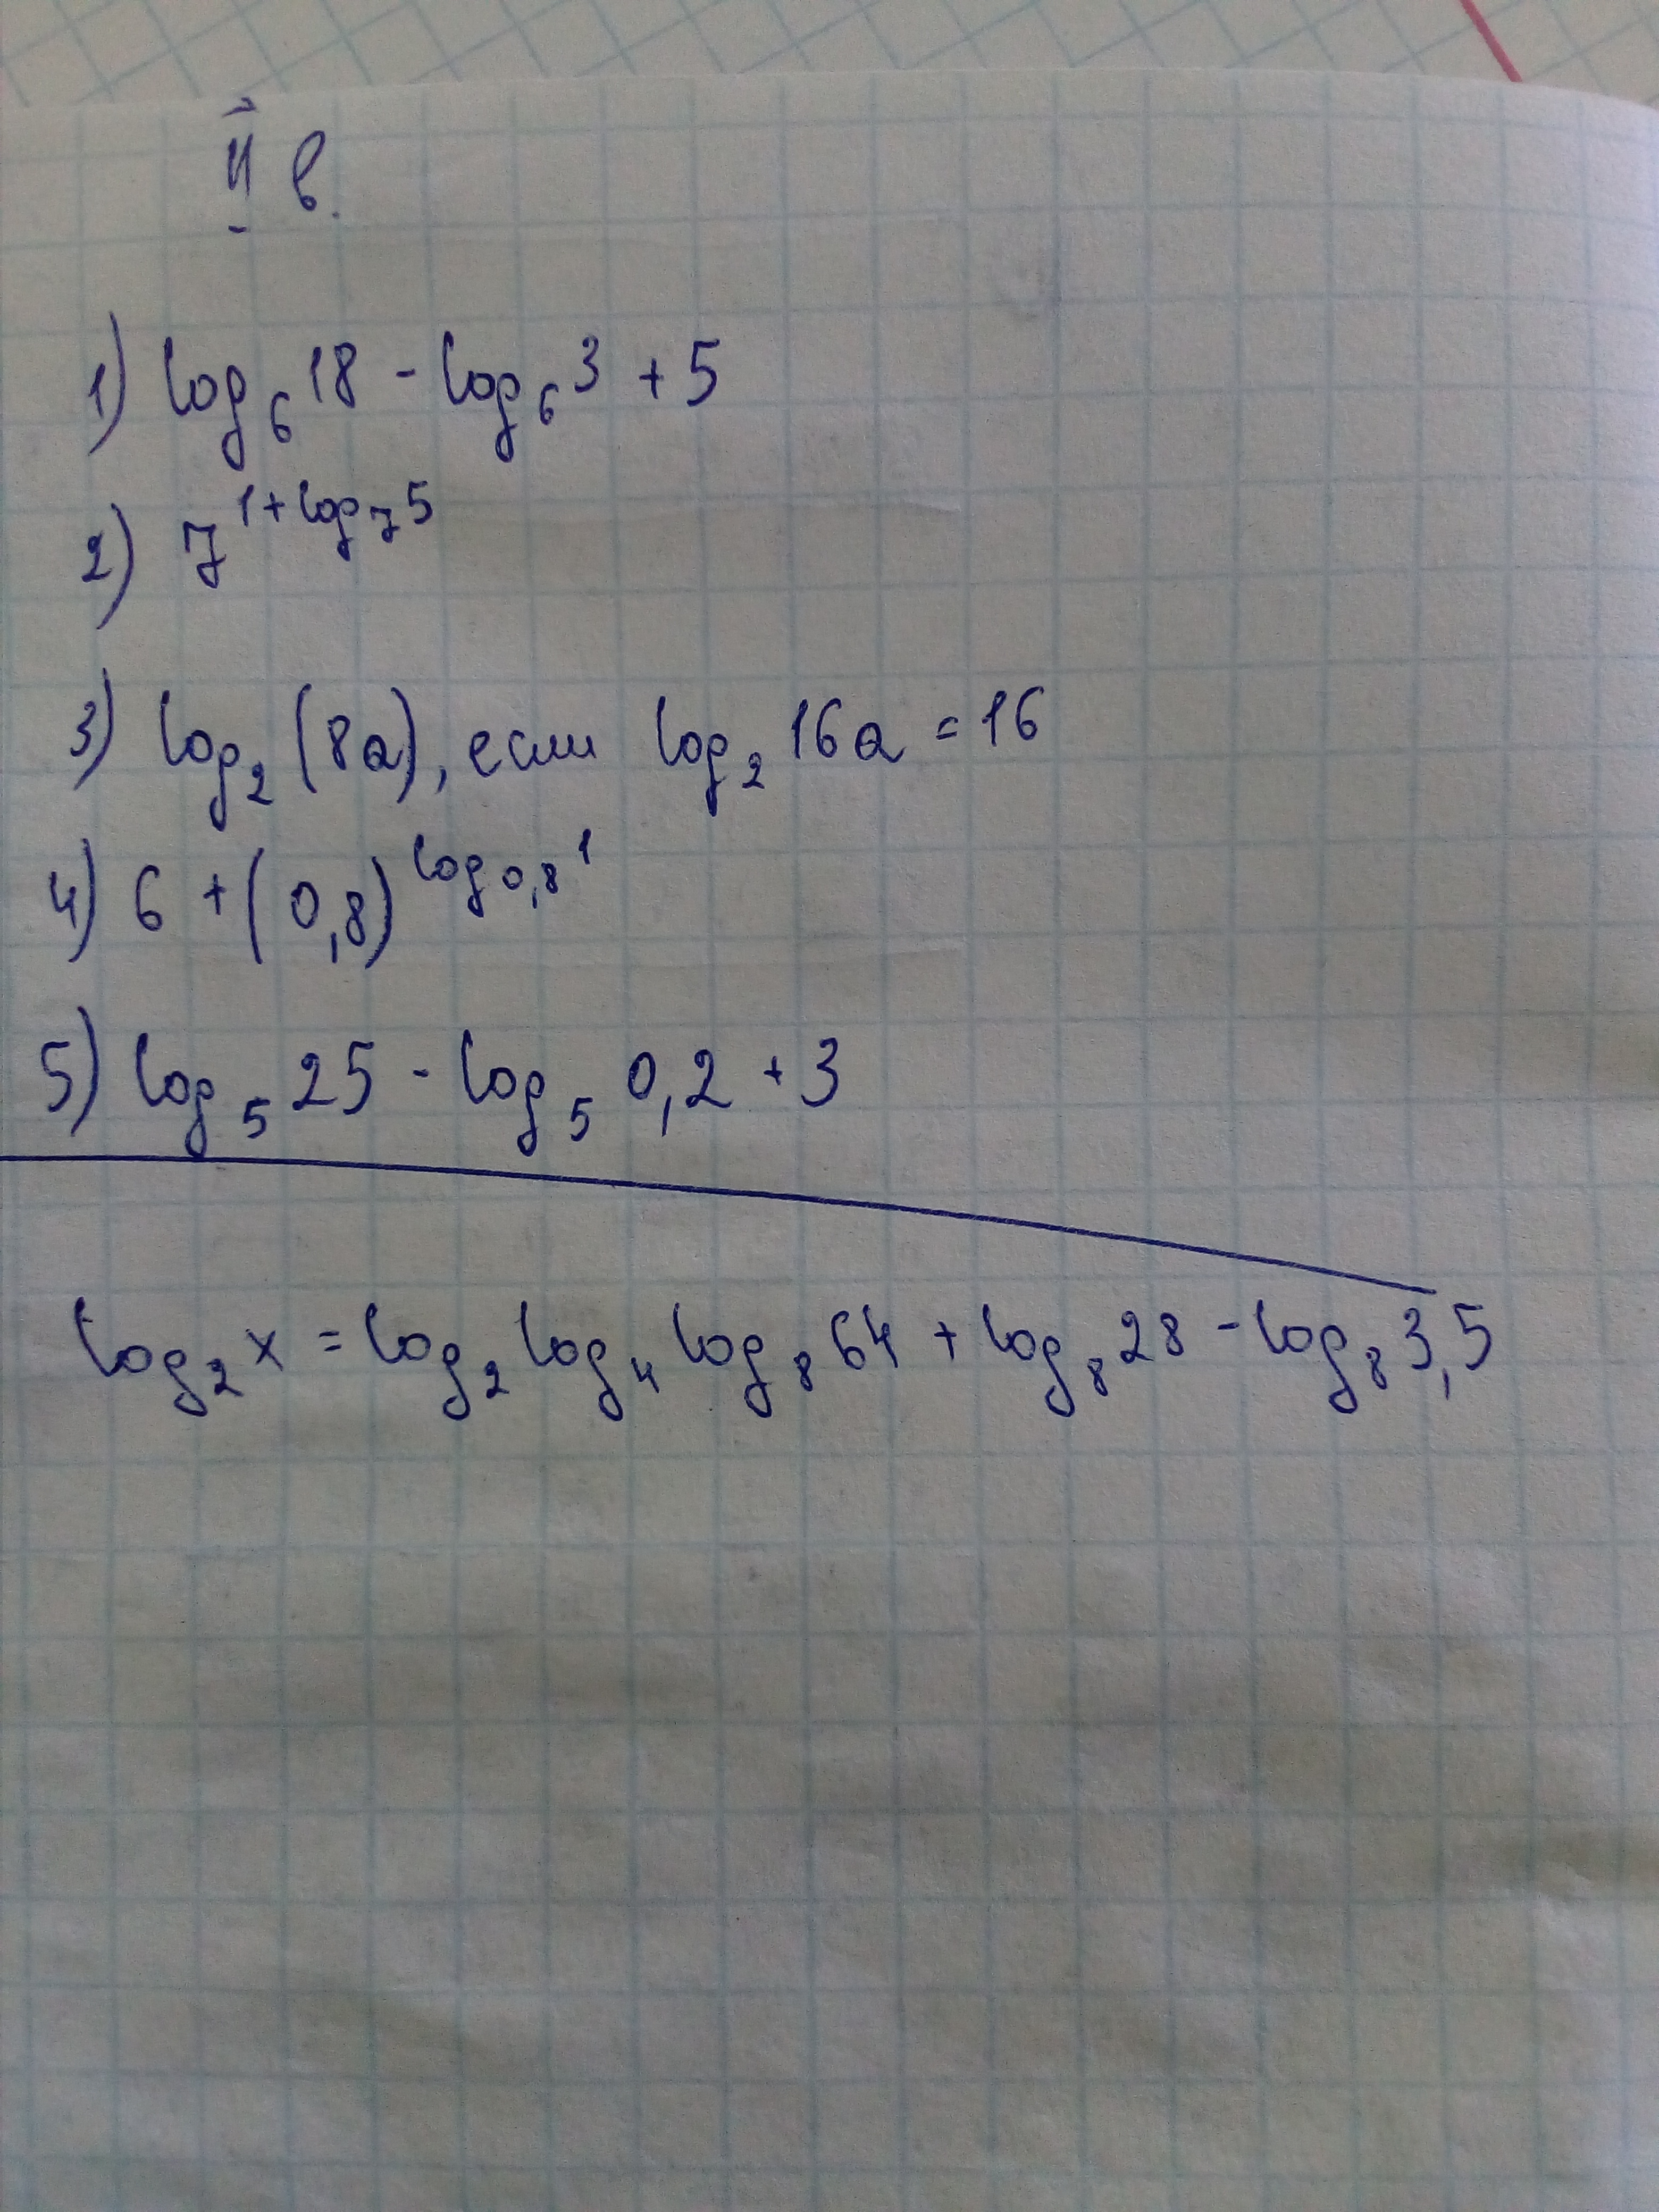 II в.
1) log₆ 18 - log₆ 3 + 5
2) 7^(1+log₇ 5)
3) log₂ (8a), если log₂ 16a = 16
4) 6 + (0,8)^(log₀,₈ 1)
5) log₅ 25 - log₅ 0,2 + 3
log₂ x = log₂ log₄ log₈ 64 + log₈ 28 - log₈ 3,5